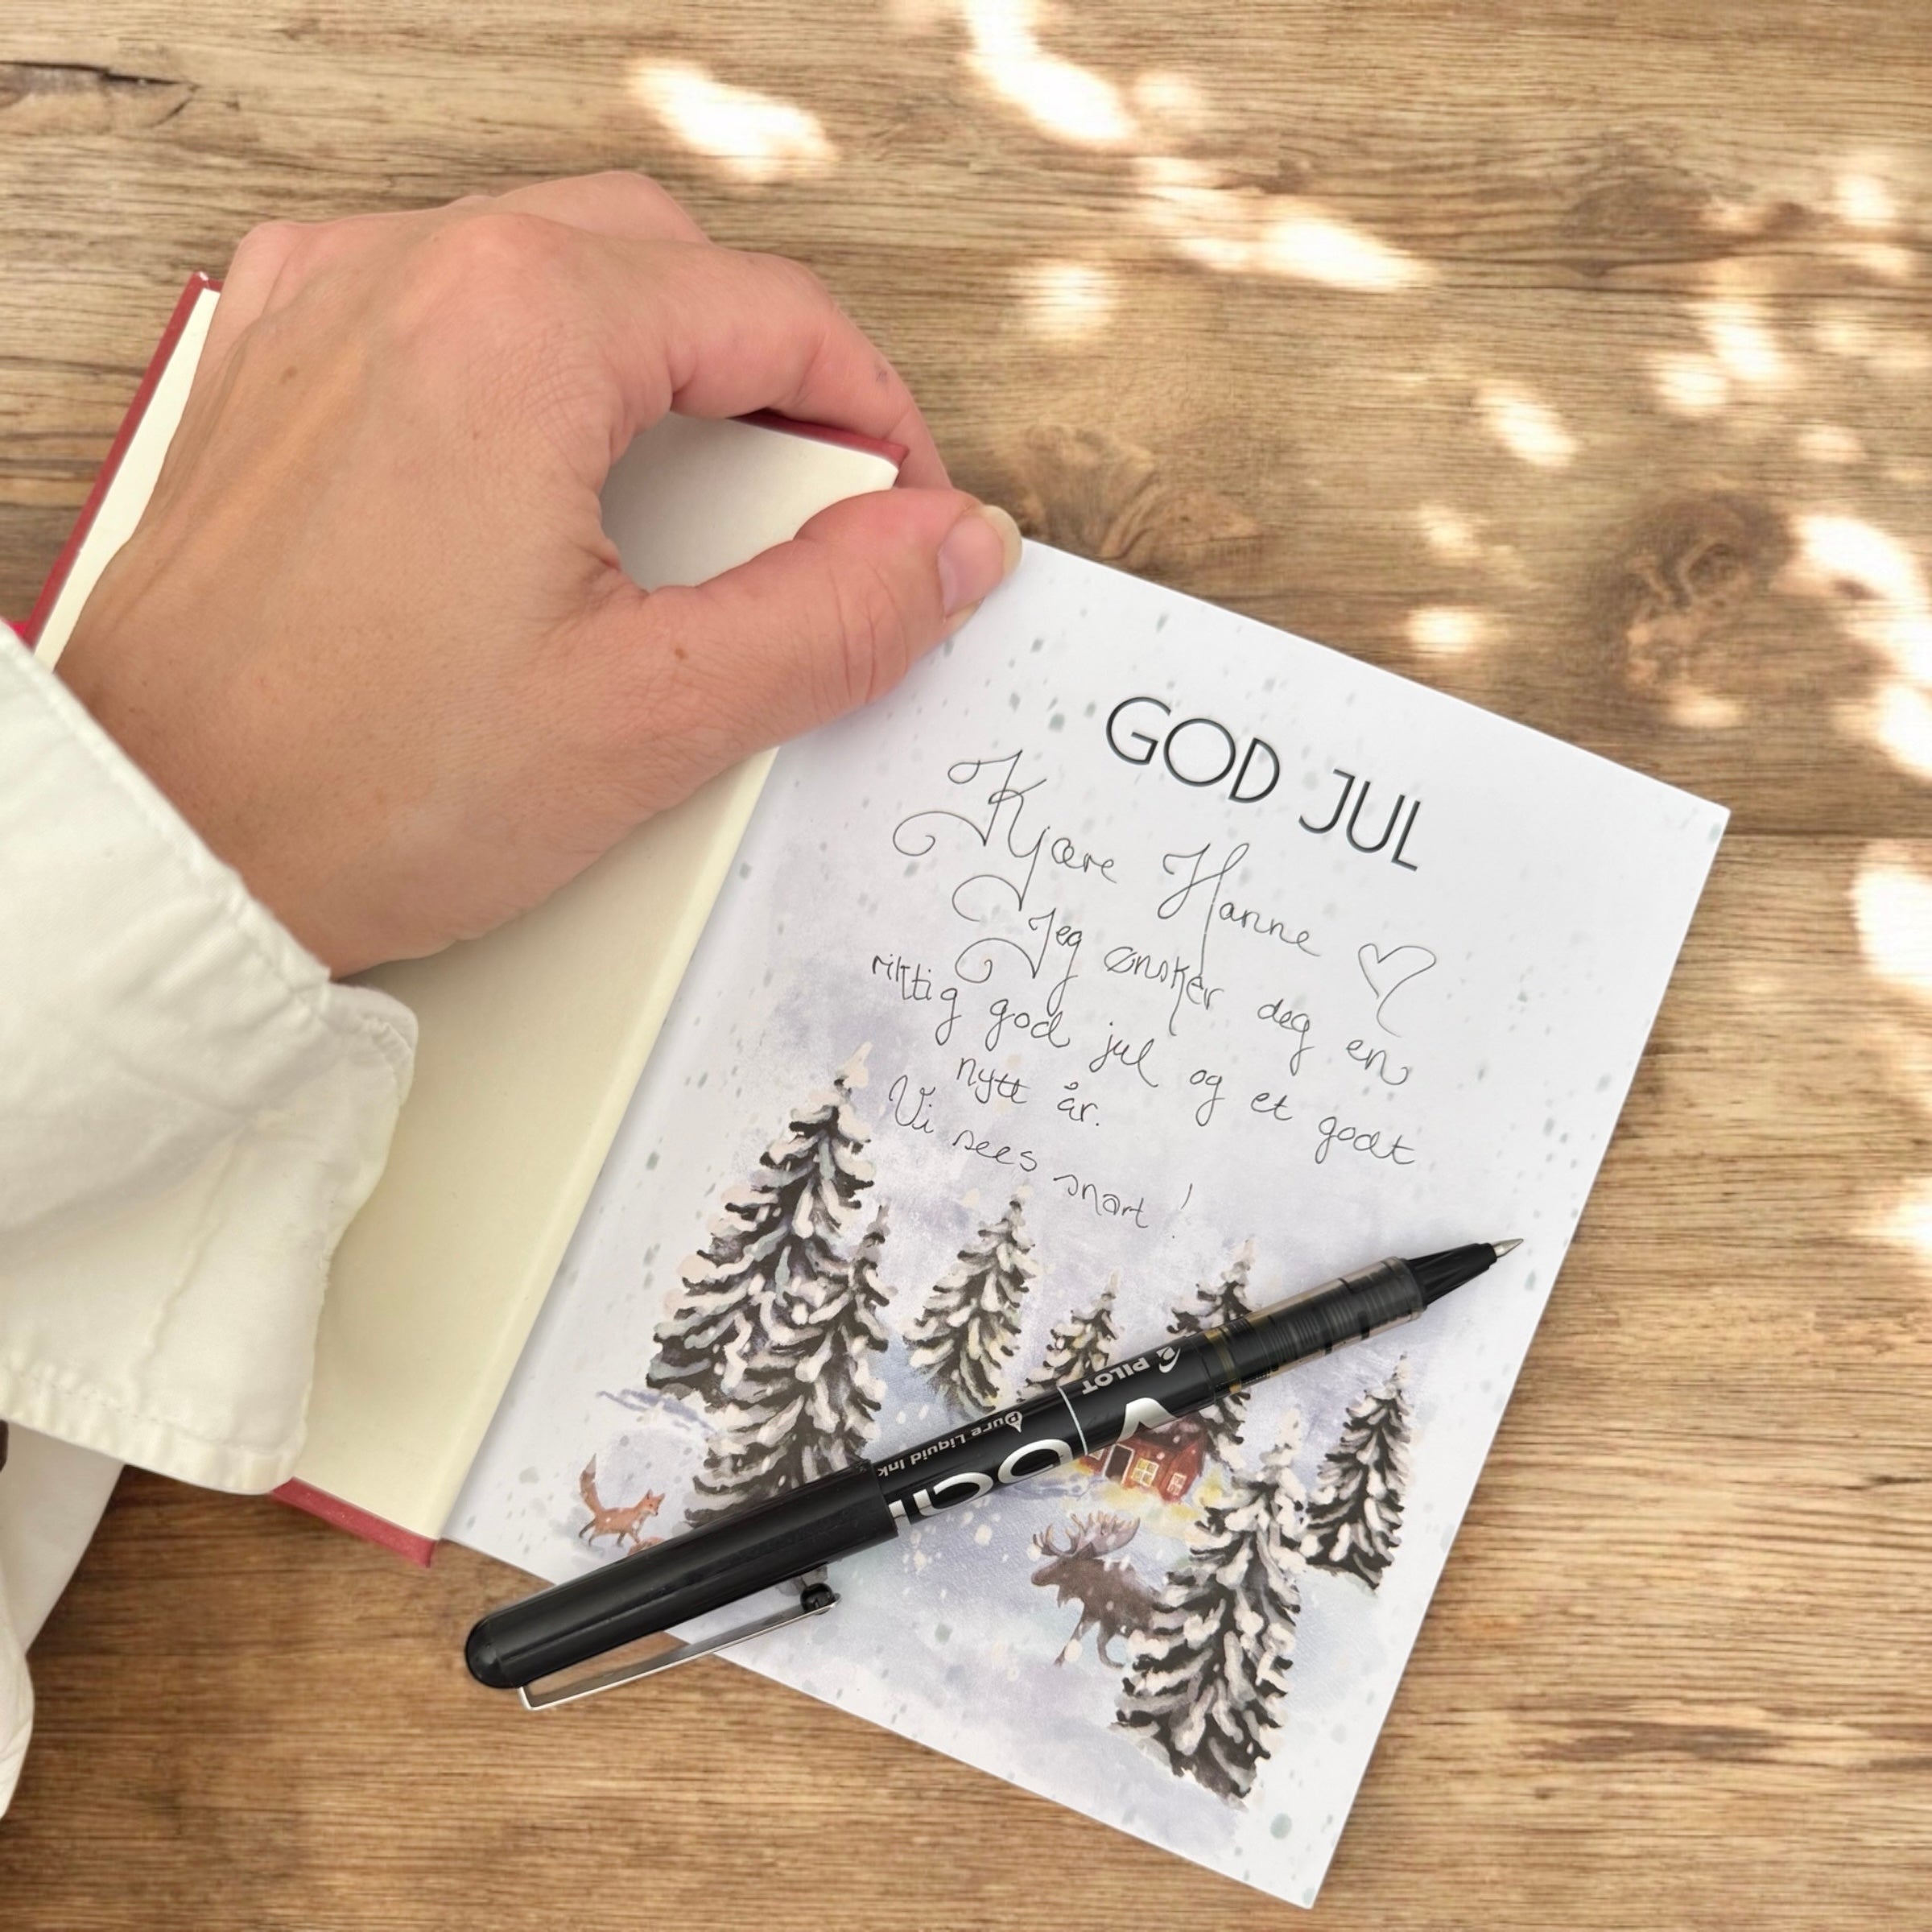 GOD JUL
Kjære Hanne ♡
Jeg ønsker deg en
riktig god jul og et godt
nytt år.
Vi sees snart!
PILOT
Pure Liquid Ink